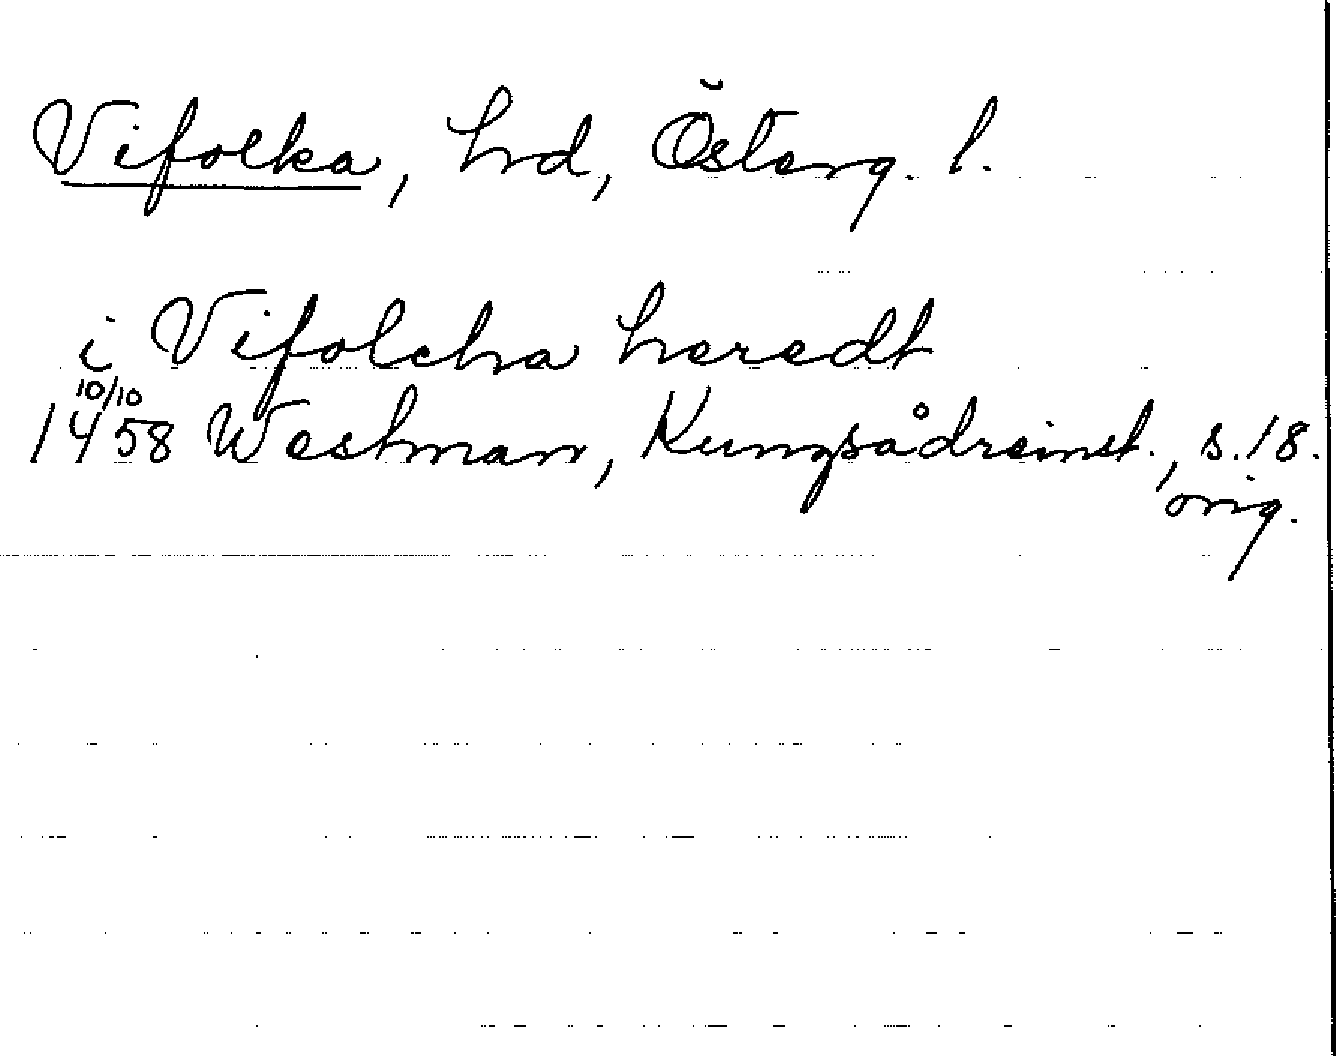 Vifolka, hrd, Österg. l.
i Vifolcha heredt
10/10
1458 Westman, Kungsådreinst., s. 18.
orig.